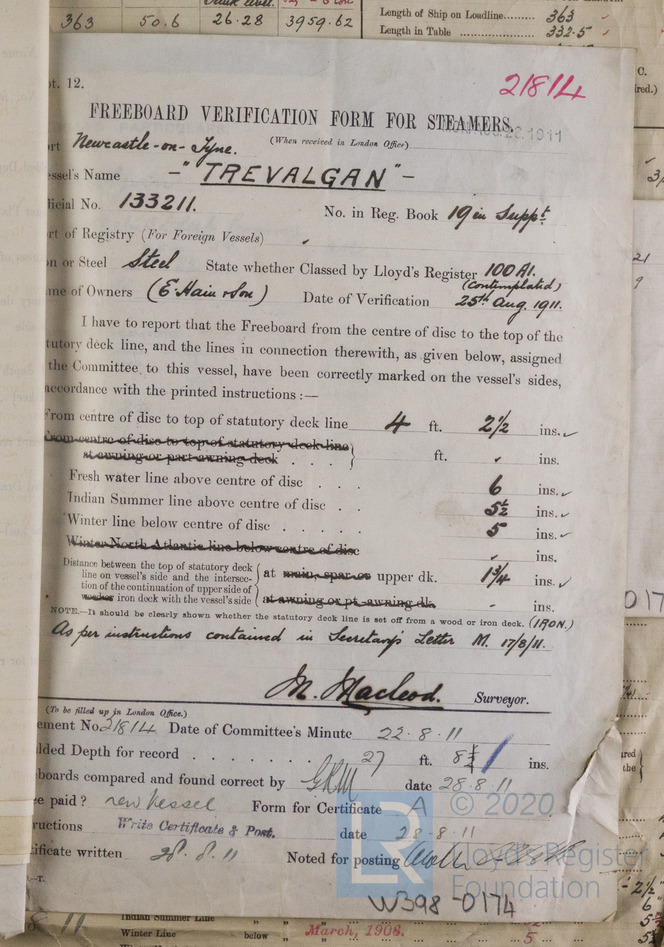 363 50.6 26.28 3959.62
Length of Ship on Loadline......... 363
Length in Table ............ 332.5
t. 12.
21814
FREEBOARD VERIFICATION FORM FOR STEAMERS.
(When received in London Office)
AUG. 26. 1911
rt Newcastle-on-Tyne.
essel's Name -"TREVALGAN"-
icial No. 133211. No. in Reg. Book 19 in Suppt.
rt of Registry (For Foreign Vessels)
n or Steel Steel State whether Classed by Lloyd's Register 100A1.
(contemplated)
me of Owners (E. Hain & Son) Date of Verification 25th Aug. 1911.
I have to report that the Freeboard from the centre of disc to the top of the
tutory deck line, and the lines in connection therewith, as given below, assigned
the Committee to this vessel, have been correctly marked on the vessel's sides,
accordance with the printed instructions :—
From centre of disc to top of statutory deck line 4 ft. 2½ ins.
From centre of disc to top of statutory deck line
at awning or part awning deck . . . ft. ins.
Fresh water line above centre of disc . . . 6 ins.
Indian Summer line above centre of disc . . 5½ ins.
Winter line below centre of disc . . . . . 5 ins.
Winter North Atlantic line below centre of disc ins.
Distance between the top of statutory deck
line on vessel's side and the intersec-
tion of the continuation of upper side of
wooden iron deck with the vessel's side
at main, spar or upper dk. 1¾ ins.
at awning or pt. awning dk. - ins.
NOTE.—It should be clearly shown whether the statutory deck line is set off from a wood or iron deck. (IRON.)
As per instructions contained in Secretary's Letter M. 17/8/11.
M. Macleod. Surveyor.
(To be filled up in London Office.)
ement No. 21814 Date of Committee's Minute 22.8.11
lded Depth for record . . . . . . . 27 ft. 8½ ins.
boards compared and found correct by GRM date 28.8.11
e paid? new vessel Form for Certificate A
ructions Write Certificate & Post. date 28.8.11
tificate written 28.8.11 Noted for posting
LR © 2020
Lloyd's Register
Foundation
W398-0174
Indian Summer Line
Winter Line below March, 1908. 5